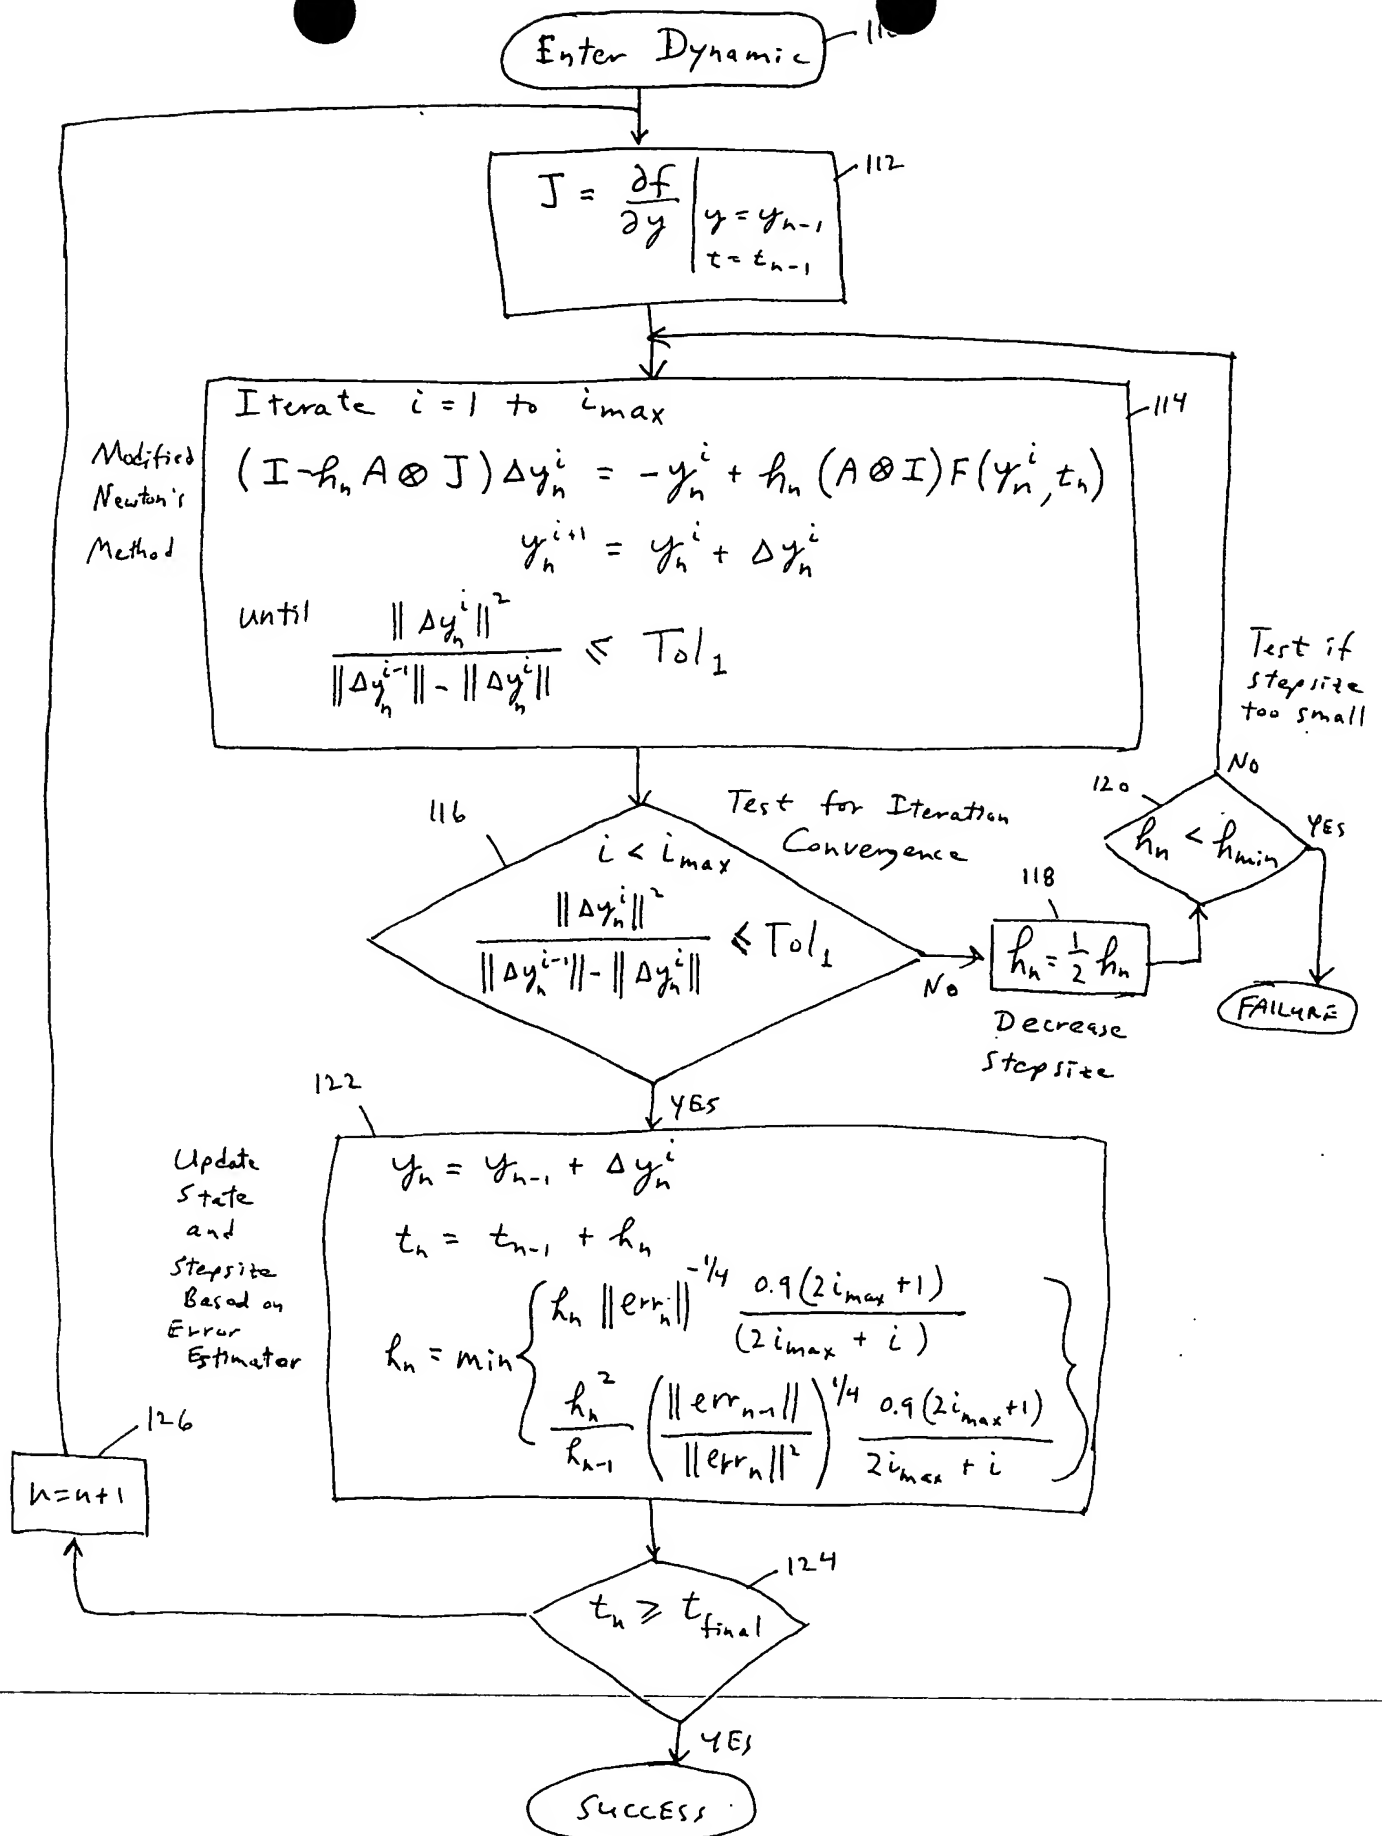 Enter Dynamic
112
J = ∂f/∂y | y = yₙ₋₁
t = tₙ₋₁
Iterate i = 1 to i_max
114
Modified
Newton's
Method
(I - hₙ A ⊗ J) Δyₙⁱ = -yₙⁱ + hₙ (A ⊗ I) F(yₙⁱ, tₙ)
yₙⁱ⁺¹ = yₙⁱ + Δyₙⁱ
until ‖Δyₙⁱ‖² / (‖Δyₙⁱ⁻¹‖ - ‖Δyₙⁱ‖) ≤ Tol₁
Test if
stepsize
too small
NO
120
hₙ < h_min
YES
FAILURE
116
Test for Iteration
Convergence
i < i_max
‖Δyₙⁱ‖² / (‖Δyₙⁱ⁻¹‖ - ‖Δyₙⁱ‖) ≤ Tol₁
NO
118
hₙ = ½ hₙ
Decrease
Stepsize
YES
122
Update
State
and
Stepsize
Based on
Error
Estimator
yₙ = yₙ₋₁ + Δyₙⁱ
tₙ = tₙ₋₁ + hₙ
hₙ = min { hₙ ‖errₙ‖^(-1/4) 0.9(2i_max + 1) / (2i_max + i)
hₙ²/hₙ₋₁ (‖errₙ₋₁‖ / ‖errₙ‖²)^(1/4) 0.9(2i_max+1) / 2i_max + i }
126
n=n+1
124
tₙ ≥ t_final
YES
SUCCESS